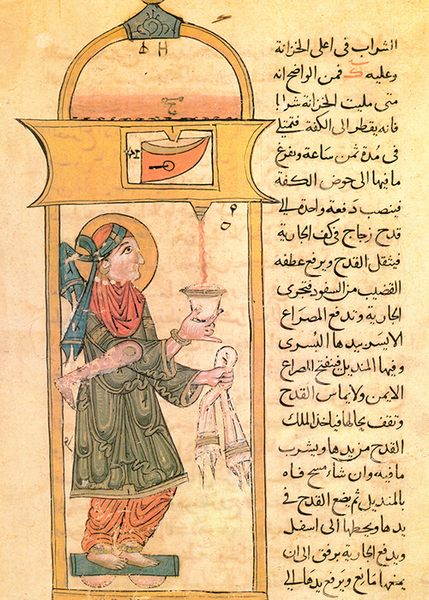 الشراب في اعلى الخزانة
وعليه ت فمن الواضح انه
متى مليت الخزانة شرابا
فانه يقطر الى الكفة فتمتلي
في مدة ثمن ساعة وتفرغ
ما فيها الى حوض الكفة
فينصب دفعة واحدة الى
قدح زجاج في كف الجارية
فيثقل القدح ويرفع عطفه
القضيب من السفود فتجري
الجارية وتدفع المصراع
الايسر بيدها اليسرى
وفيها المنديل فينفتح المصراع
الايمن ولا يماس القدح
وتقف بحالها فياخذ الملك
القدح من يدها ويشرب
ما فيه وان شاء مسح فاه
بالمنديل ثم يضع القدح في
يدها ويحطها الى اسفل
ويدفع الجارية برفق الى ان
يمنعها مانع ويرفع يدها الى